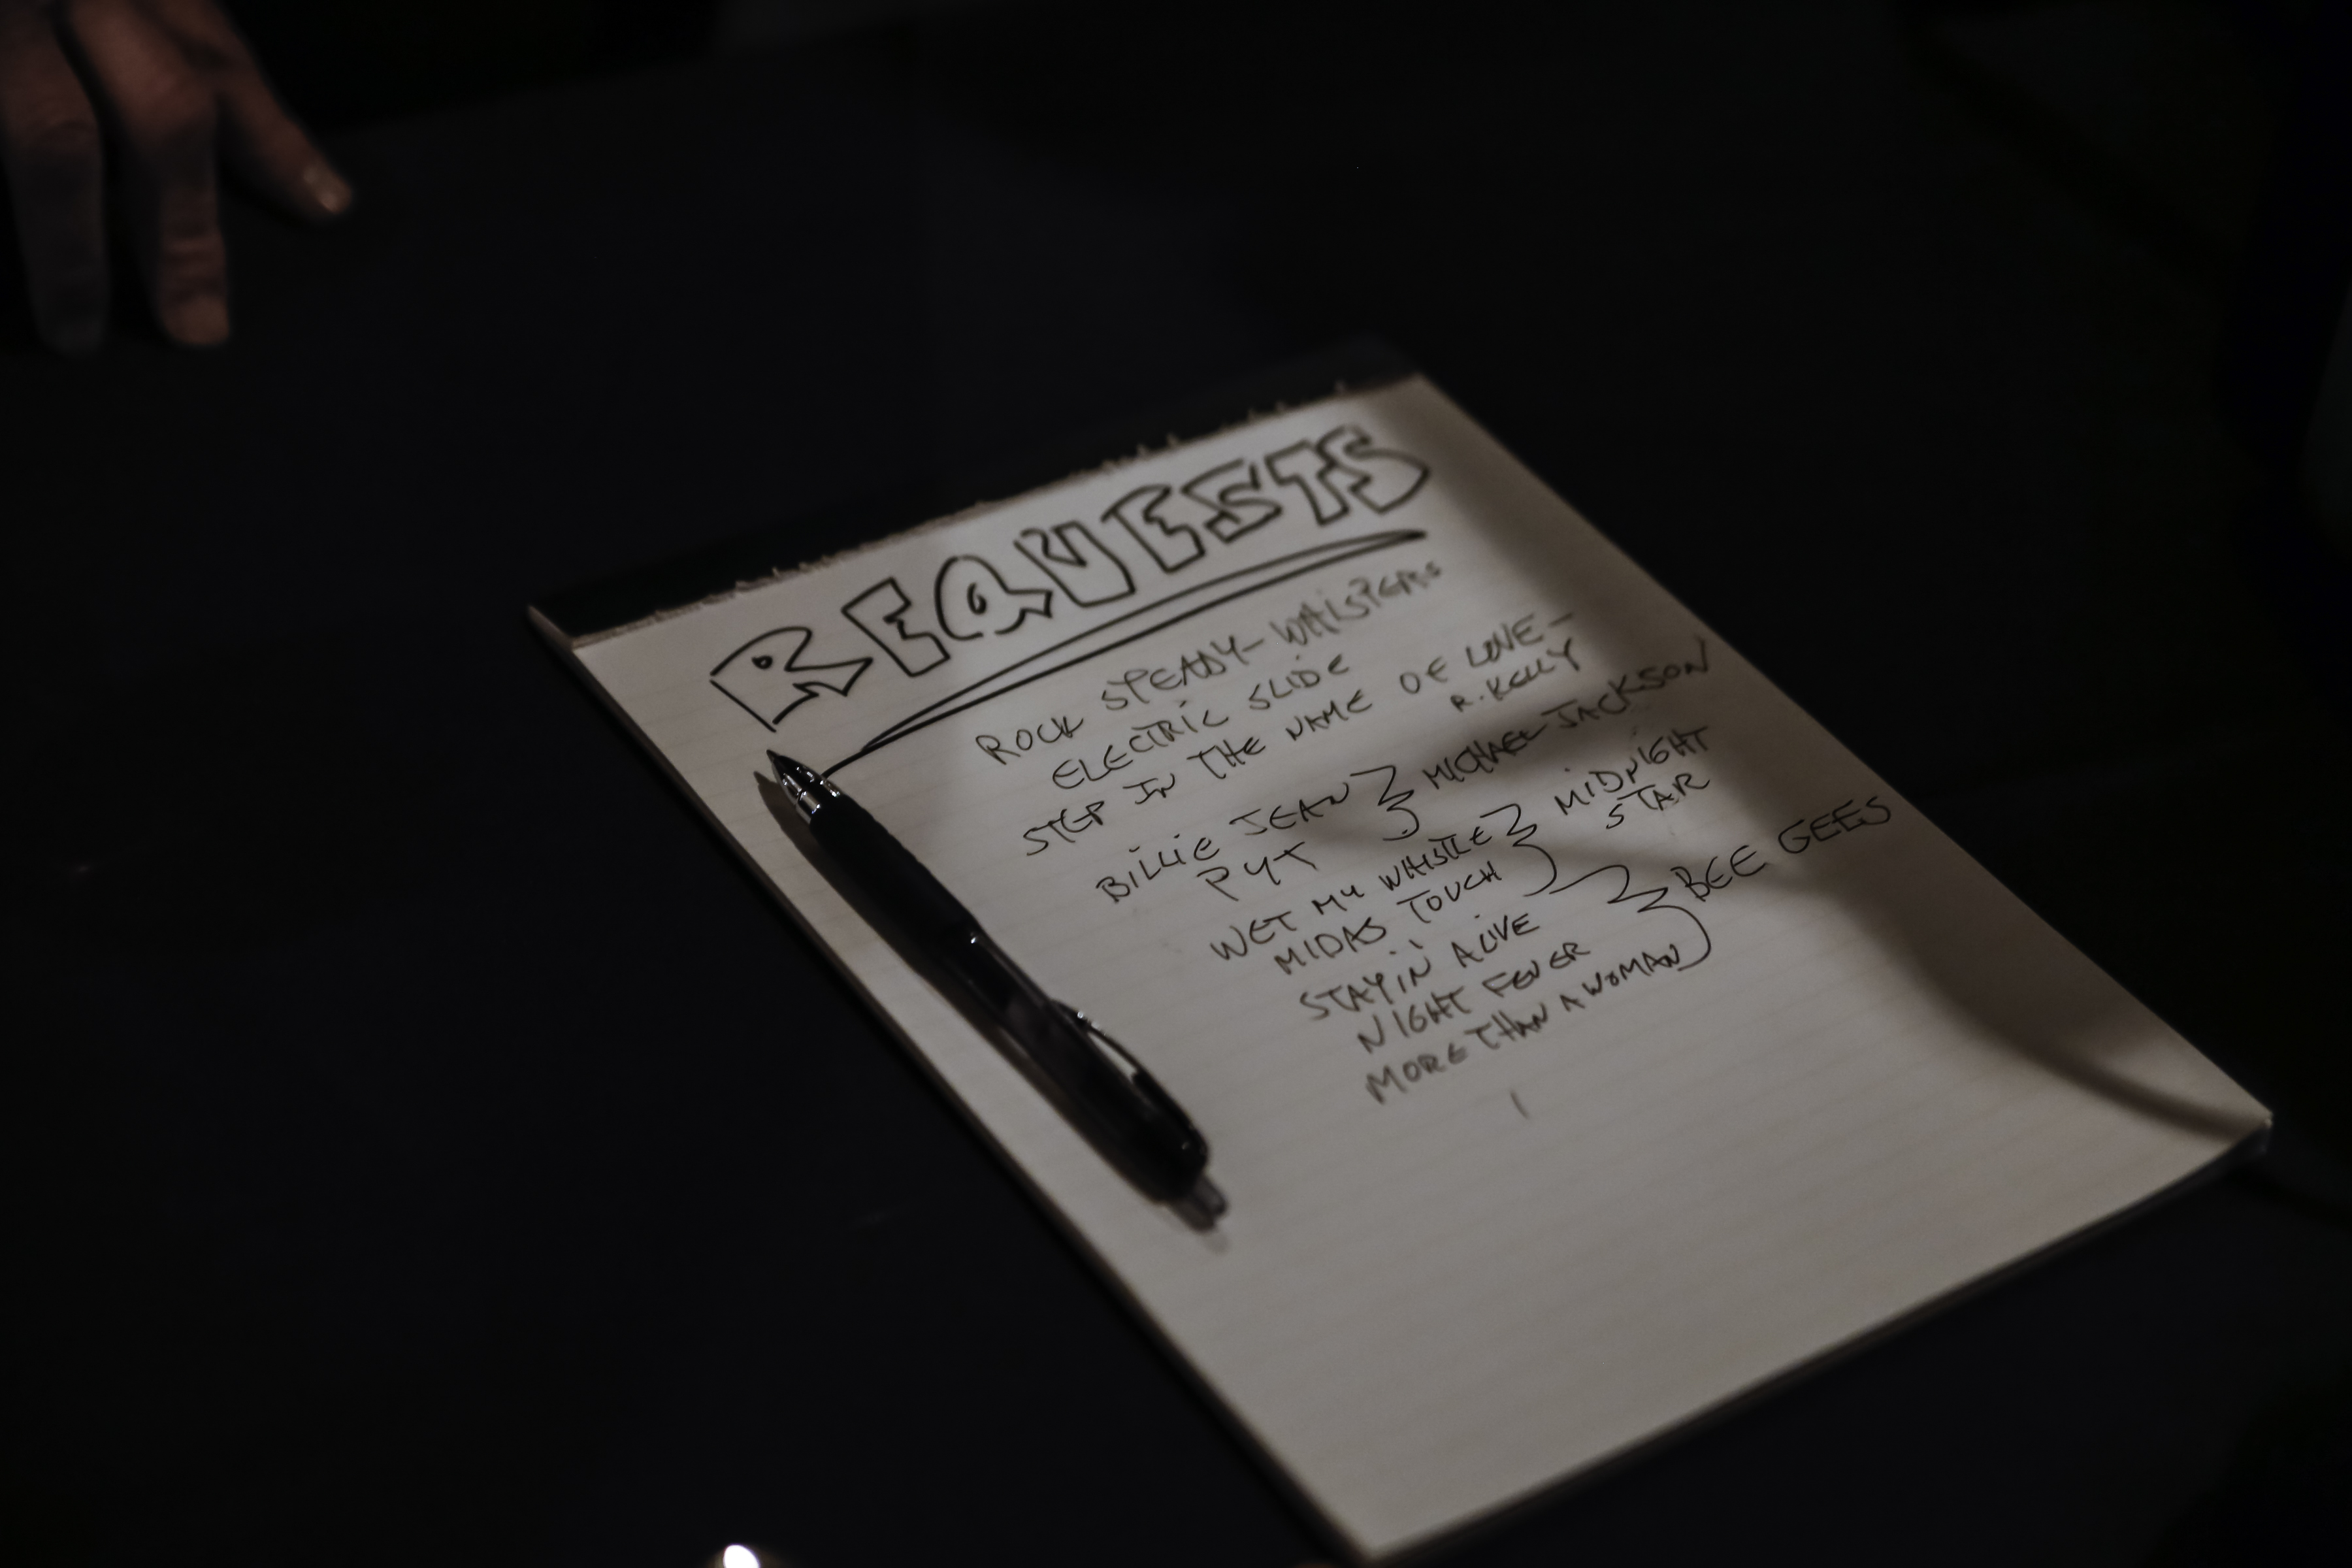 REQUESTS
ROCK STEADY - WHISPERS
ELECTRIC SLIDE
STEP IN THE NAME OF LOVE -
R. KELLY
BILLIE JEAN } MICHAEL JACKSON
PYT
WET MY WHISTLE } MIDNIGHT
MIDAS TOUCH STAR
STAYIN ALIVE } BEE GEES
NIGHT FEVER
MORE THAN A WOMAN